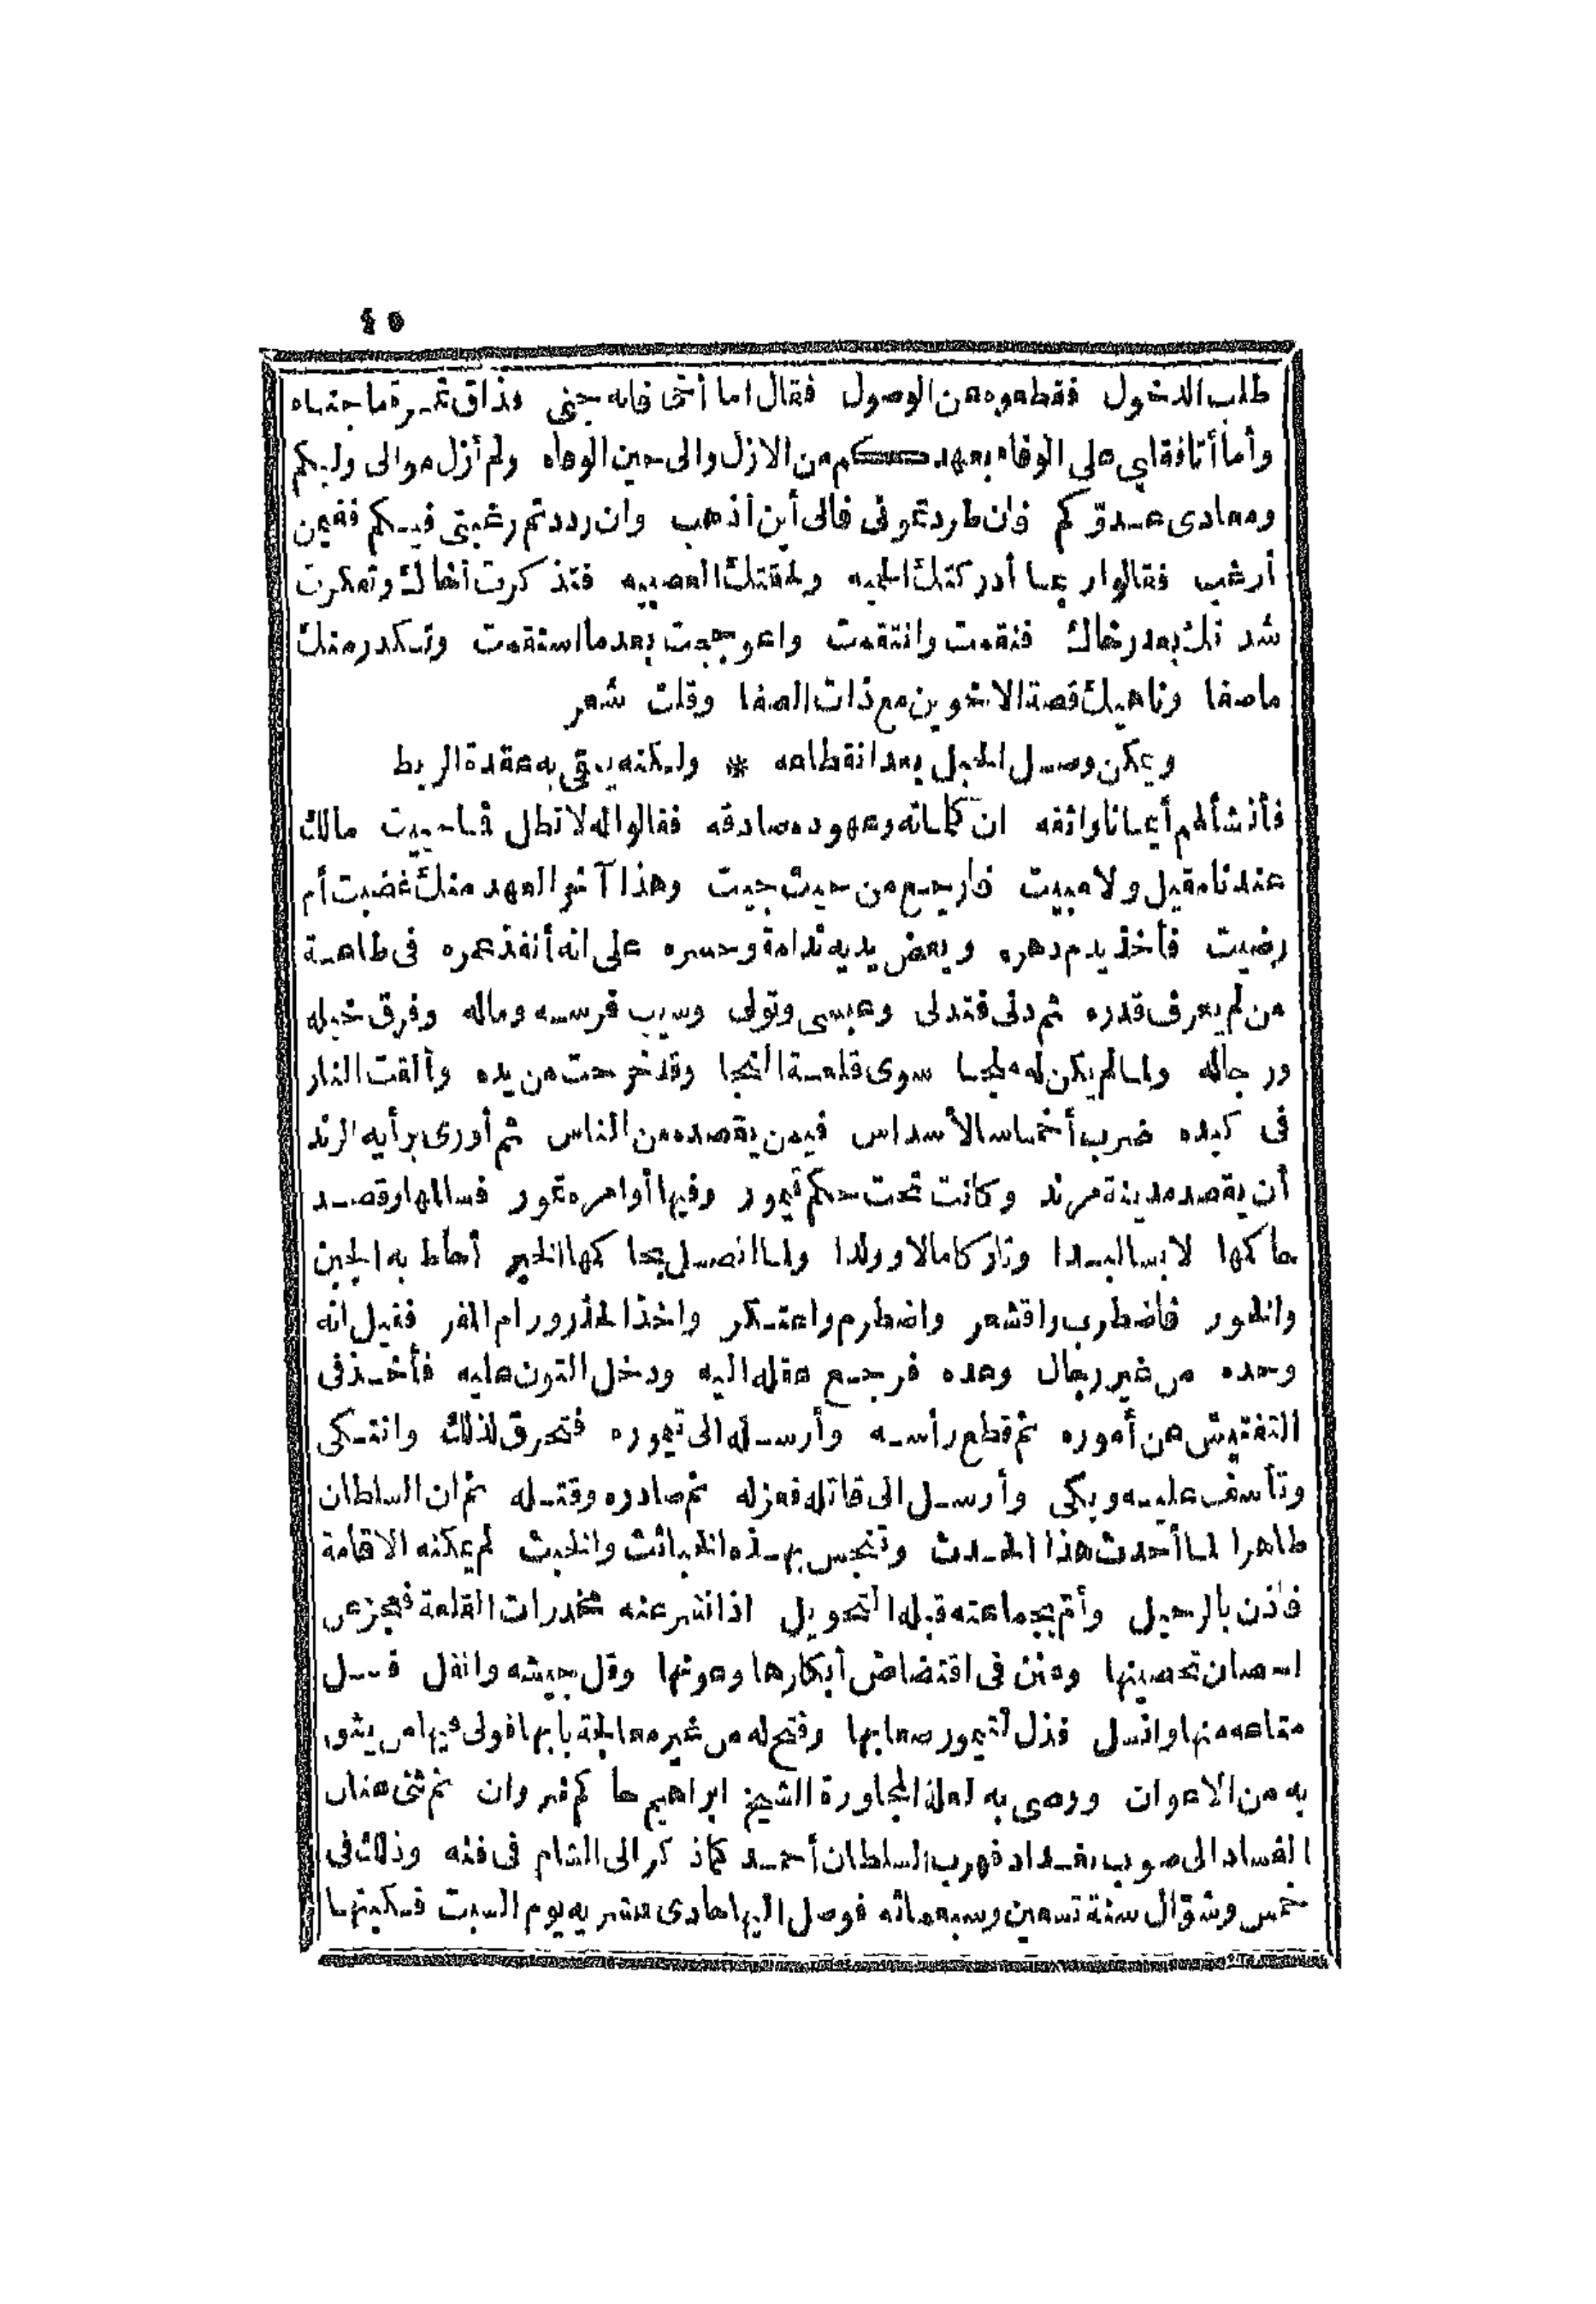 ٤٥
طلب الدخول فقطعوه من الوصول فقال اما أخى فانه جنى وذاق ثمرة ما جناه
وأما أنا فقلبى على الوفاء بعهدكم من الازل والى حين الوفاه ولم أزل موالى وليكم
ومعادى عدوّكم فان طردتمونى فالى أين أذهب وان رددتم رغبتى فيكم ففيمن
أرغب فقالوا ربما أدركتك الحميه ولحقتك العصبيه فتذكرت أخاك وتفكرت
شدتك بعد رخاك فنقمت وانتقمت واعوججت بعد ما استقمت وتكدر منك
ما صفا وناهيك قصة الاخوين مع ذات الصفا وقلت شعر
ويمكن وصل الحبل بعد انقطاعه * ولكنه يبقى به عقدة الربط
فأنشأ لهم أيمانا واثقه ان كلماته وعهوده صادقه فقالوا له لا تطل فما حييت مالك
عندنا مقيل ولا مبيت فارجع من حيث جيت وهذا آخر العهد منك غضبت أم
رضيت فأخذ يذم دهره ويعض يديه ندامة وحسره على انه أنفذ عمره فى طاعة
من لم يعرف قدره ثم دنى فتدلى وعبسى وتولى وسيب فرسه وماله وفرق خيله
ورجاله ولما لم يكن له ملجا سوى قلعة النجا وقد خرجت من يده وألقت النار
فى كبده ضرب أخماس الأسداس فيمن يقصده من الناس ثم أورى برأيه الزند
أن يقصد مدينة مرند وكانت تحت حكم تيمور وفيها أوامره تمور فسالمها وقصد
حاكها لابسا لبدا وتاركا مالا وولدا ولما اتصل بحاكها الخبر أحاط به الجبن
والخور فاضطرب واقشعر واضطرم واعتكر واخذ الحذر ورام المفر فقيل انه
وحده من غير رجال وعده فرجع عقله اليه ودخل التون عليه فأخذ فى
التفتيش عن أموره ثم قطع رأسه وأرسله الى تيموره فتحرق لذلك وانتكى
وتأسف عليه وبكى وأرسل الى قاتله فعزله ثم صادره وقتله ثم ان السلطان
طاهرا لما أحدث هذا الحدث وتنجس بهذه الخبائث والخبث لم يمكنه الاقامة
فأذن بالرحيل وأتم بجماعته قبله التحويل اذ انتهز عنه مخدرات القلعة فعجز عن
احصان تحصينها وعنن فى اقتضاض أبكارها وعونها وقل جيشه وانفل فسل
متاعه منها وانسل فذل لتيمور صعابها وفتح له من غير معالجة بابها فولى فيها من يثق
به من الاعوان ووصى به لعلة المجاورة الشيخ ابراهيم حاكم شروان ثم ثنى عنان
الفساد الى صوب بغداد فهرب السلطان أحمد كما ذكر الى الشام فى فئه وذلك فى
خمس وشوّال سنة تسعين وسبعمائه فوصل اليها حادى عشريه يوم السبت فكبتها